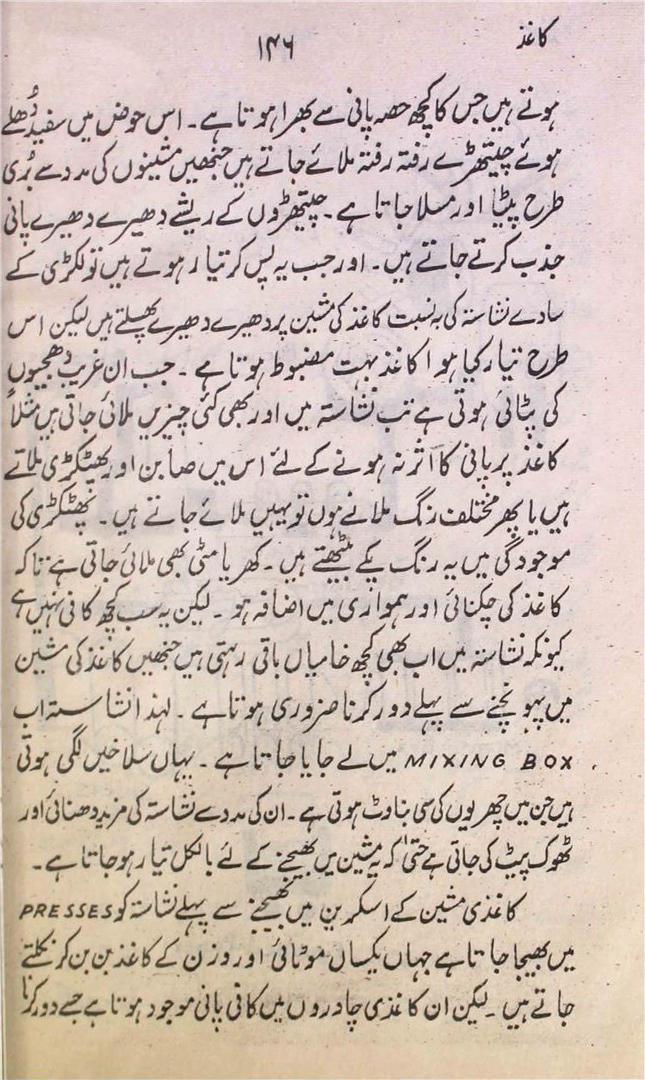 کاغذ
۱۴۶
ہوتے ہیں جس کا کچھ حصہ پانی سے بھرا ہوتا ہے۔ اس حوض میں سفید دُھلے
ہوئے چیتھڑے رفتہ رفتہ ملائے جاتے ہیں جنھیں مشینوں کی مدد سے بُری
طرح پیٹا اور مسلا جاتا ہے۔ چیتھڑوں کے ریشے دھیرے دھیرے پانی
جذب کرتے جاتے ہیں۔ اور جب یہ پس کر تیار ہوتے ہیں تو لکڑی کے
سادے نشاستہ کی بہ نسبت کاغذ کی مشین پر دھیرے دھیرے پھیلتے ہیں لیکن اس
طرح تیار کیا ہوا کاغذ بہت مضبوط ہوتا ہے۔ جب ان غریب دھجیوں
کی پٹائی ہوتی ہے تب نشاستہ میں اور بھی کئی چیزیں ملائی جاتی ہیں مثلاً
کاغذ پر پانی کا اثر نہ ہونے کے لئے اس میں صابن اور پھٹکڑی ملاتے
ہیں یا پھر مختلف رنگ ملانے ہوں تو یہیں ملائے جاتے ہیں۔ پھٹکڑی کی
موجودگی میں یہ رنگ پکے بیٹھتے ہیں۔ کھریا مٹی بھی ملائی جاتی ہے تاکہ
کاغذ کی چکنائی اور ہمواری میں اضافہ ہو۔ لیکن یہ سب کچھ کافی نہیں ہے
کیونکہ نشاستہ میں اب بھی کچھ خامیاں باقی رہتی ہیں جنھیں کاغذ کی مشین
میں پہونچنے سے پہلے دور کرنا ضروری ہوتا ہے۔ لہذا نشاستہ اب
MIXING BOX میں لے جایا جاتا ہے۔ یہاں سلاخیں لگی ہوتی
ہیں جن میں چھریوں کی سی بناوٹ ہوتی ہے۔ ان کی مدد سے نشاستہ کی مزید دھنائی اور
ٹھوک پیٹ کی جاتی ہے حتیٰ کہ یہ مشین میں بھیجنے کے لئے بالکل تیار ہو جاتا ہے۔
کاغذی مشین کے اسکرین میں بھیجنے سے پہلے نشاستہ کو PRESSES
میں بھیجا جاتا ہے جہاں یکساں موٹائی اور وزن کے کاغذ بن بن کر نکلتے
جاتے ہیں۔ لیکن ان کاغذی چادروں میں کافی پانی موجود ہوتا ہے جسے دور کرنا